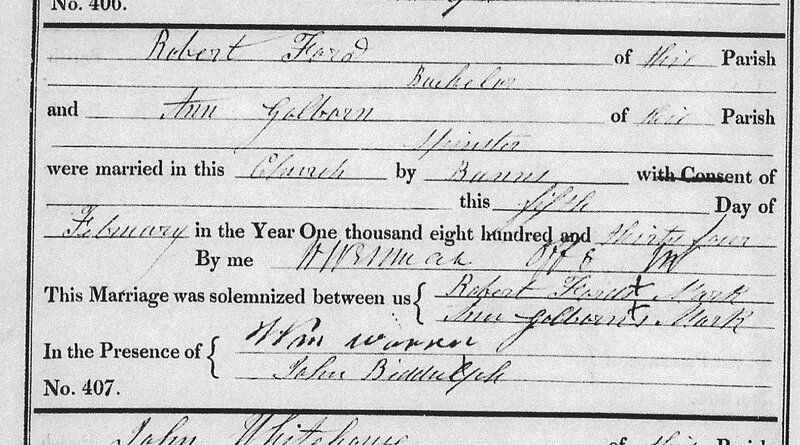 No. 406.
Robert Ford of this Parish
Bachelor
and Ann Golborn of this Parish
Spinster
were married in this Church by Banns with Consent of
this fifth Day of
February in the Year One thousand eight hundred and thirty four
By me Off
This Marriage was solemnized between us { Robert Fords X Mark
Ann Golborn's X Mark
In the Presence of { Wm Warren
John Biddulph
No. 407.
John Whitehouse of this Parish